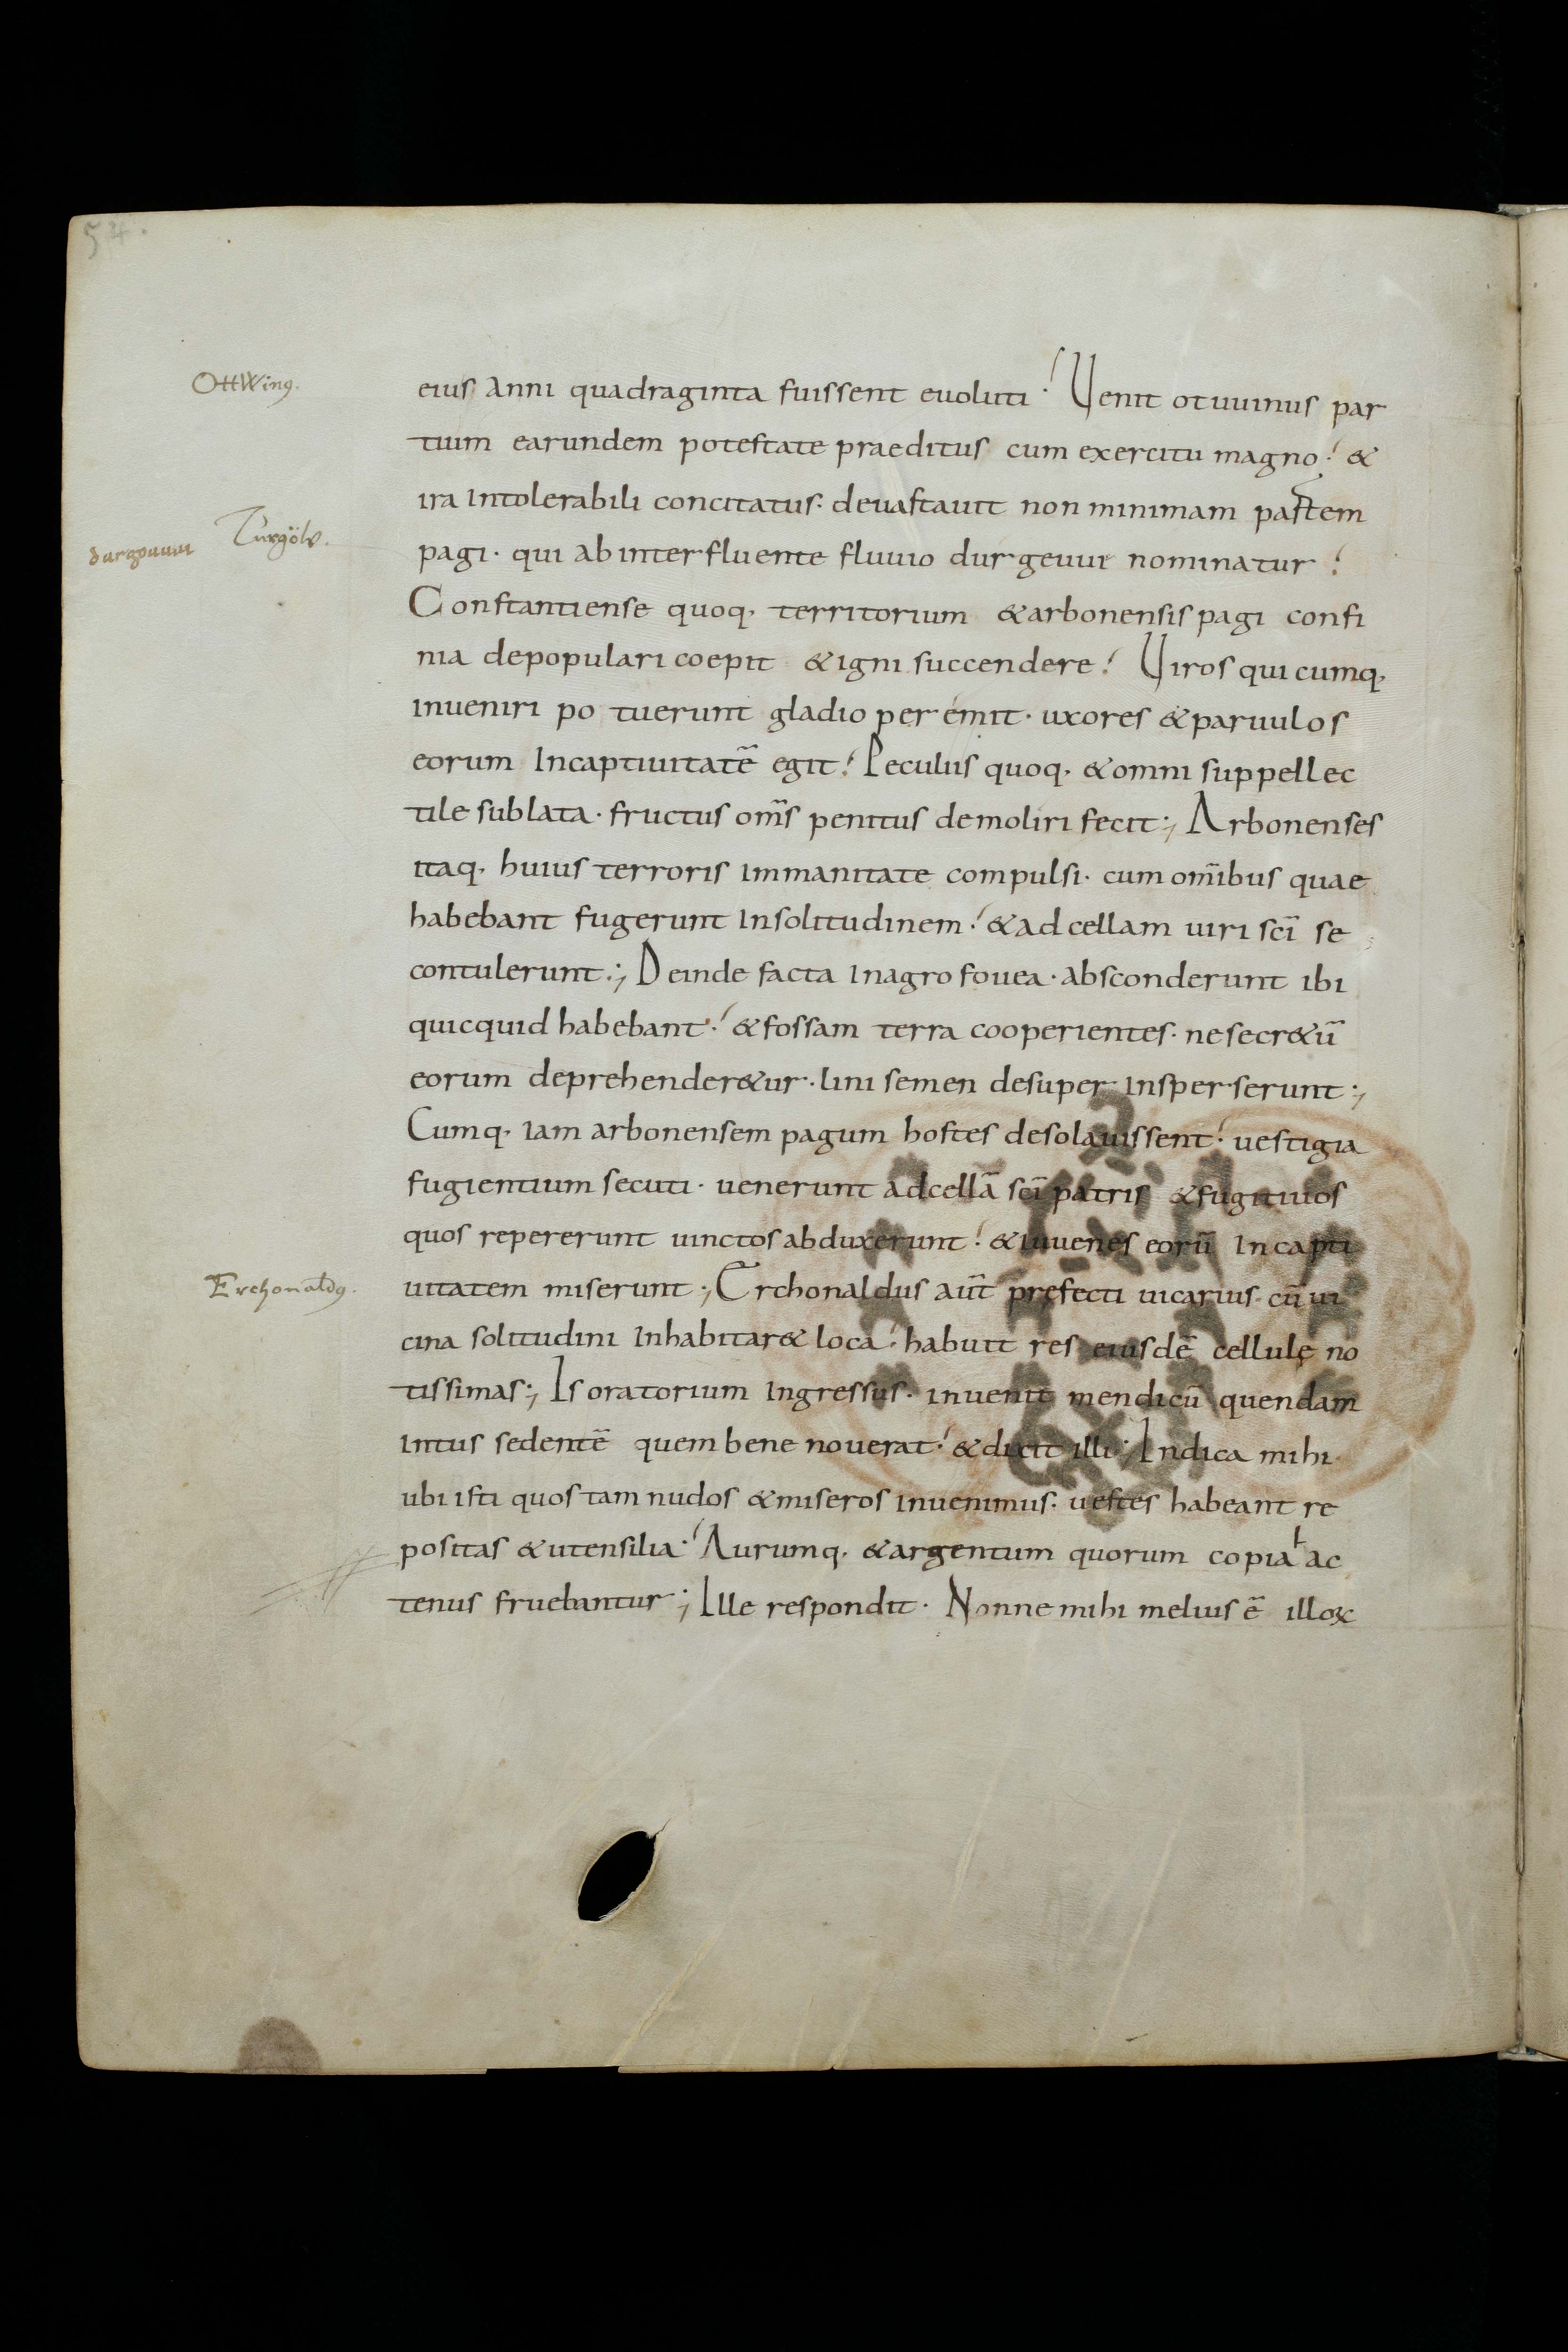 54.
OttWing9.
eius anni quadraginta fuissent euoluti. Uenit otuuinus par
tium earundem potestate praeditus cum exercitu magno. &
ira intolerabili concitatus. deuastauit non minimam partem
Turgöw.
durgouuui
pagi. qui ab interfluente fluuio durgeuui nominatur.
Constantiense quoq. territorium & arbonensis pagi confi
nia depopulari coepit & igni succendere. Uiros qui cumq.
inueniri potuerunt gladio peremit. uxores & paruulos
eorum in captiuitatē egit. Peculiis quoq. & omni suppellec
tile sublata. fructus om̄s penitus demoliri fecit; Arbonenses
itaq. huius terroris immanitate compulsi. cum om̄ibus quae
habebant fugerunt in solitudinem. & ad cellam uiri sc̄i se
contulerunt; Deinde facta in agro fouea. absconderunt ibi
quicquid habebant. & fossam terra cooperientes. ne secr&ū
eorum deprehender&ur. lini semen desuper insperserunt;
Cumq. iam arbonensem pagum hostes desolauissent. uestigia
fugientium secuti. uenerunt ad cellā sc̄i patris & fugitiuos
quos repererunt uinctos abduxerunt. & iuuenes eorū in capti
Erchonald9.
uitatem miserunt; Erchonaldus aūt pręfecti uicarius. cū ui
cina solitudini inhabitar& loca. habuit res eiusdē cellulę no
tissimas; Is oratorium ingressus. inuenit mendicū quendam
intus sedentē quem bene nouerat. & dixit illi; Indica mihi
ubi isti quos tam nudos & miseros inuenimus. uestes habeant re
positas & utensilia. Aurumq. & argentum quorum copia ⱶac
tenus fruebantur; Ille respondit. Nonne mihi melius ē illoꝝ